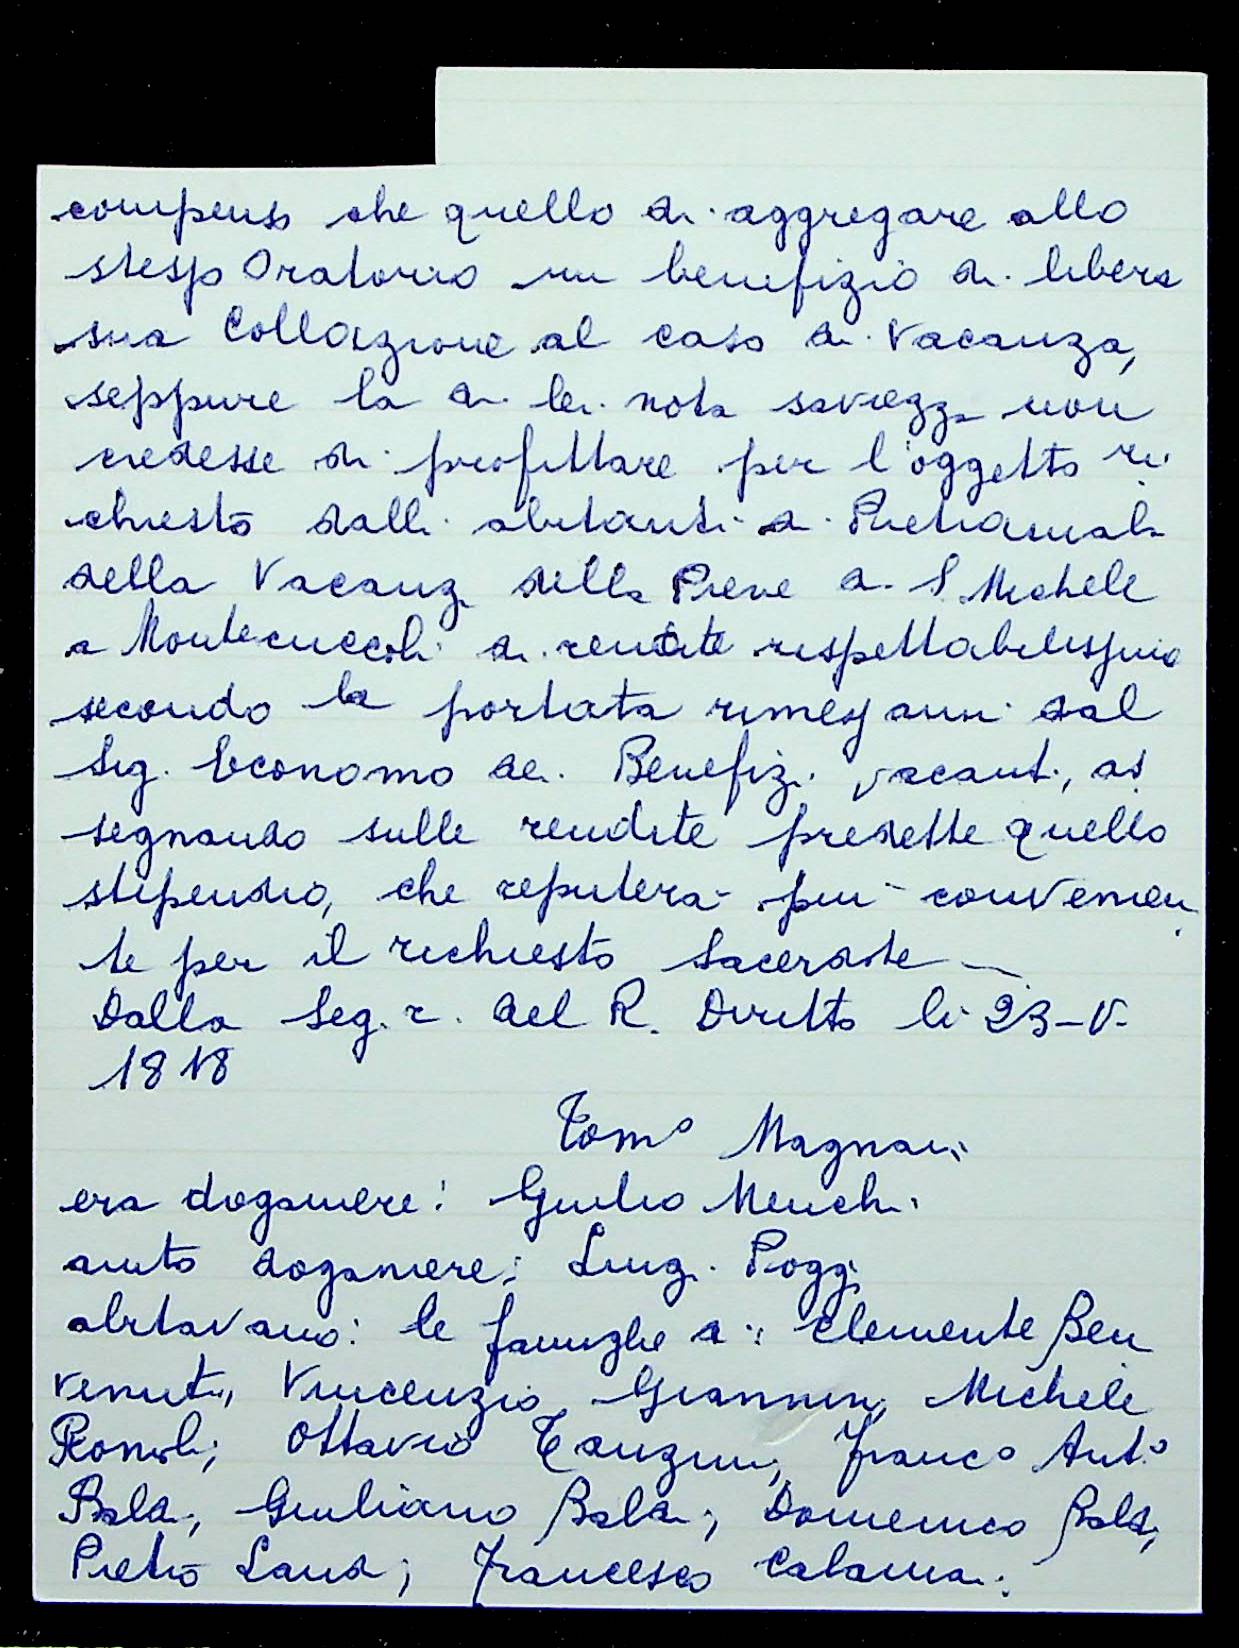 compenso che quello di aggregare allo
stesso Oratorio un benifizio di libera
sua Collazione al caso di Vacanza,
seppure la di lei nota saviezza non
credesse di profittare per l'oggetto ri
chiesto dalli abitanti di Pietramala
della Vacanza della Pieve di S. Michele
a Montecuccoli di rendite rispettabilissime
secondo la portata rimessami dal
Sig. Economo dei Benefizi vacanti, as
segnando sulle rendite predette quello
stipendio, che reputerà più convenien
te per il richiesto Sacerdote —
Dalla Seg. r. del R. Diritto li 23-V-
1818
Tomº Magnani
era doganiere: Giulio Menchi
aiuto doganiere: Luigi Poggi
abitavano: le famiglie di: Clemente Ben
venuti, Vincenzio Giannini, Michele
Romoli; Ottavio Tanzini; Francº Antº
Baldi; Giuliano Baldi; Domenico Baldi;
Pietro Landi; Francesco Calamai.